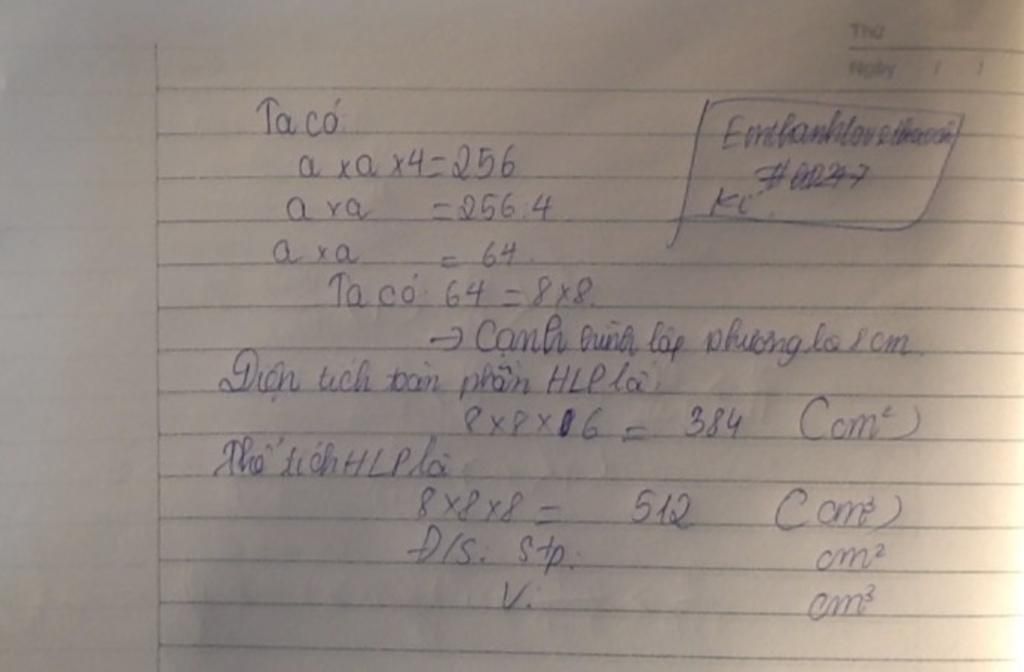 Thứ
Ngày / /
Ta có
a x a x 4 = 256
a x a = 256:4
a x a = 64
Ta có 64 = 8 x 8.
→ Cạnh hình lập phương là 8 cm.
Diện tích toàn phần HLP là:
8 x 8 x 6 = 384 (cm²)
Thể tích HLP là
8 x 8 x 8 = 512 (cm³)
Đ/S: Stp: cm²
V: cm³